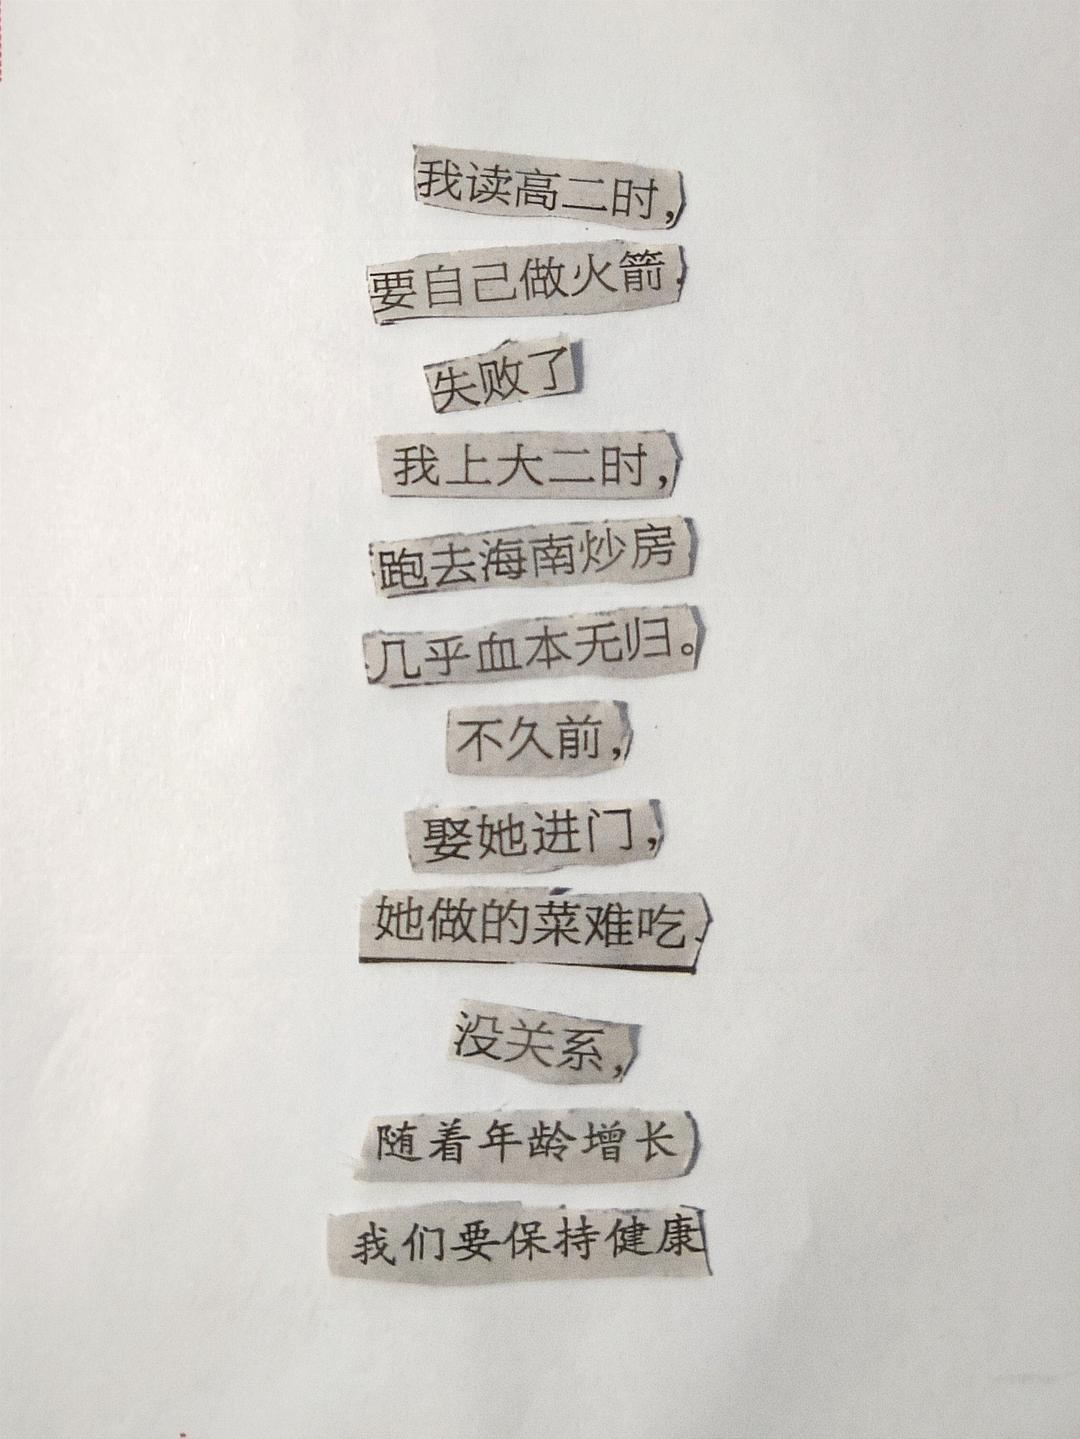 我读高二时，
要自己做火箭，
失败了
我上大二时，
跑去海南炒房
几乎血本无归。
不久前，
娶她进门，
她做的菜难吃，
没关系，
随着年龄增长
我们要保持健康